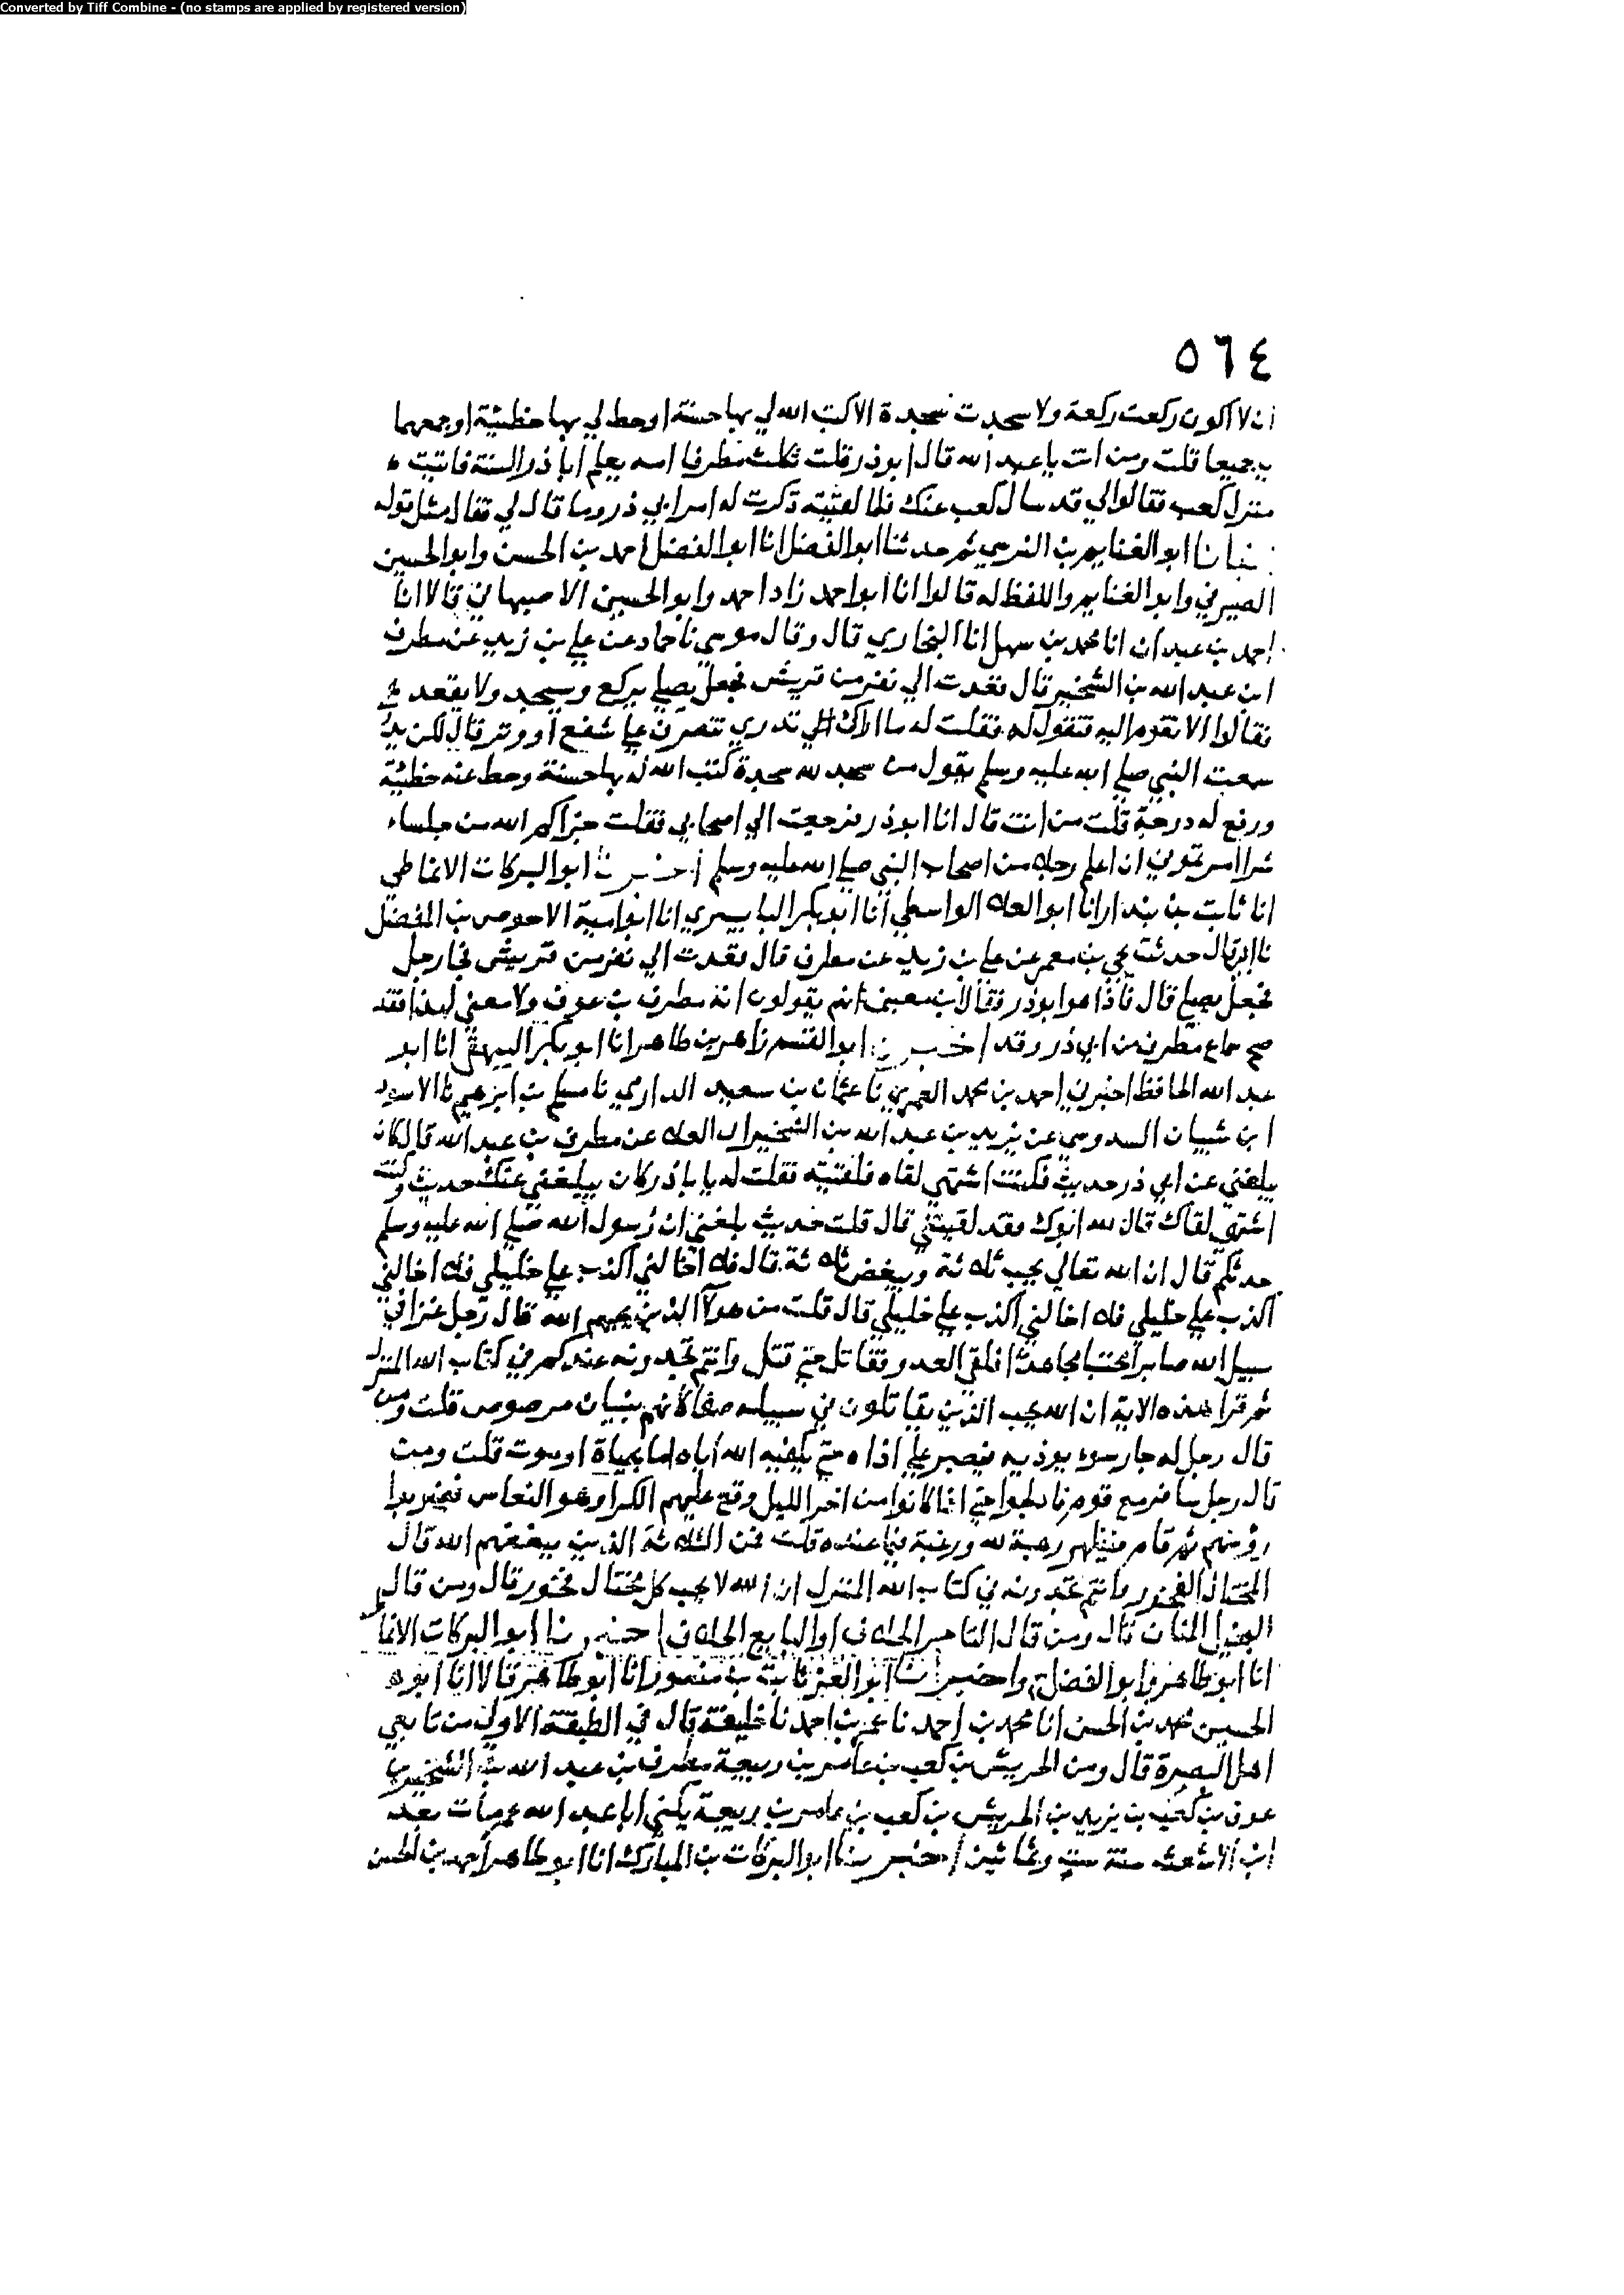 Converted by Tiff Combine - (no stamps are applied by registered version)
٥٦٤
ان لا اكون ركعت ركعة ولا سجدت سجدة الا كتب الله لي بها حسنة او حط لي بها خطيئة او جمعهما
لي جميعا قلت ومن انت يا عبد الله قال ابو ذر قلت ثكلت مطرفا امه يعلم ابا ذر السنة فاتيت
منزل كعب فقالوا لي قد سال كعب عنك فلما لقيته ذكرت له امر ابي ذر وما قال لي فقال مثل قوله
انبانا ابو الغنايم بن النرسي ثم حدثنا ابو الفضل انا ابو الفضل احمد بن الحسن وابو الحسين
الصيرفي وابو الغنايم واللفظ له قالوا انا ابو احمد زاد احمد وابو الحسين الاصبهاني قالا انا
احمد بن عبدان انا محمد بن سهل انا البخاري قال وقال موسي نا حماد عن علي بن زيد عن مطرف
ابن عبد الله بن الشخير قال قعدت الي نفر من قريش فجعل يصلي يركع ويسجد ولا يقعد
فقالوا الا تقوم اليه فتقول له فقلت له ما اراك تدري تنصرف علي شفع او وتر قال لكن
سمعت النبي صلي الله عليه وسلم يقول من سجد لله سجدة كتب الله له بها حسنة وحط عنه خطيئة
ورفع له درجة قلت من انت قال انا ابو ذر فرجعت الي اصحابي فقلت جزاكم الله من جلساء
شرا امرتموني ان اعلم رجلا من اصحاب النبي صلي الله عليه وسلم اخبرنا ابو البركات الانماطي
انا ثابت بن بندار انا ابو العلا الواسطي انا ابو بكر البابسيري انا ابو امية الاحوص بن المفضل
نا ابي قال حدثت يحيي بن معمر عن علي بن زيد عن مطرف قال قعدت الي نفر من قريش فجا رجل
فجعل يصلي قال فاذا هوا بو ذر فقال ابن معين انهم يقولون انه مطرف بن عوف ولا معني لهذا فقد
صح سماع مطرف من ابي ذر وقد اخبرنا ابو القسم زاهر بن طاهر انا ابو بكر البيهقي انا ابو
عبد الله الحافظ اخبرني احمد بن محمد العمري نا عثمان بن سعيد الدارمي نا مسلم بن ابرهيم نا الاسود
ابن شيبان السدوسي عن يزيد بن عبد الله بن الشخير ابي العلا عن مطرف بن عبد الله قال كان
يبلغني عن ابي ذر حديث فكنت اشتهي لقاه فلقيته فقلت له يا با ذر كان يبلغني عنك حديث وكنت
اشتهي لقاك قال لله ابوك فقد لقيتني قال قلت حديث بلغني ان رسول الله صلي الله عليه وسلم
حدثكم قال ان الله تعالي يحب ثلاثة ويبغض ثلاثة قال فلا اخالني اكذب علي خليلي فلا اخالني
اكذب علي خليلي فلا اخالني اكذب علي خليلي قال قلت من هولا الذين يحبهم الله قال رجل غزا في
سبيل الله صابرا محتسبا مجاهدا فلقي العدو فقاتل حتي قتل وانتم تجدونه عندكم في كتاب الله المنزل
ثم قرا هذه الاية ان الله يحب الذين يقاتلون في سبيله صفا كانهم بنيان مرصوص قلت ومن
قال رجل له جار سوء يوذيه فيصبر علي اذاه حتي يكفيه الله اياه اما بحياة او موت قلت ومن
قال رجل سافر مع قوم فادلجوا حتي اذا كانوا من اخر الليل وقع عليهم الكرا وهو النعاس فضربوا
رؤسهم ثم قام فتطهر رهبة لله ورغبة فيما عنده قلت فمن الثلاثة الذين يبغضهم الله قال
المختال الفخور وانتم تجدونه في كتاب الله المنزل ان الله لا يحب كل مختال فخور قال ومن قال
البخيل المنان قال ومن قال التاجر الحلاف او البايع الحلاف اخبرنا ابو البركات الانماطي
انا ابو طاهر وابو الفضل واخبرنا ابو العز ثابت بن منصور انا ابو طاهر قالا انا ابو
الحسين محمد بن الحسن انا محمد بن احمد نا عمر بن احمد نا خليفة قال في الطبقة الاولي من تابعي
اهل البصرة قال ومن الحريش بن كعب بن عامر بن ربيعة مطرف بن عبد الله بن الشخير بن
عوف بن كعب بن يزيد بن الحريش بن كعب بن عامر بن ربيعة يكني ابا عبد الله مات بعد
ابن الاشعث سنة ست وثمانين اخبرنا ابو البركات بن المبارك انا ابو طاهر احمد بن الحسن